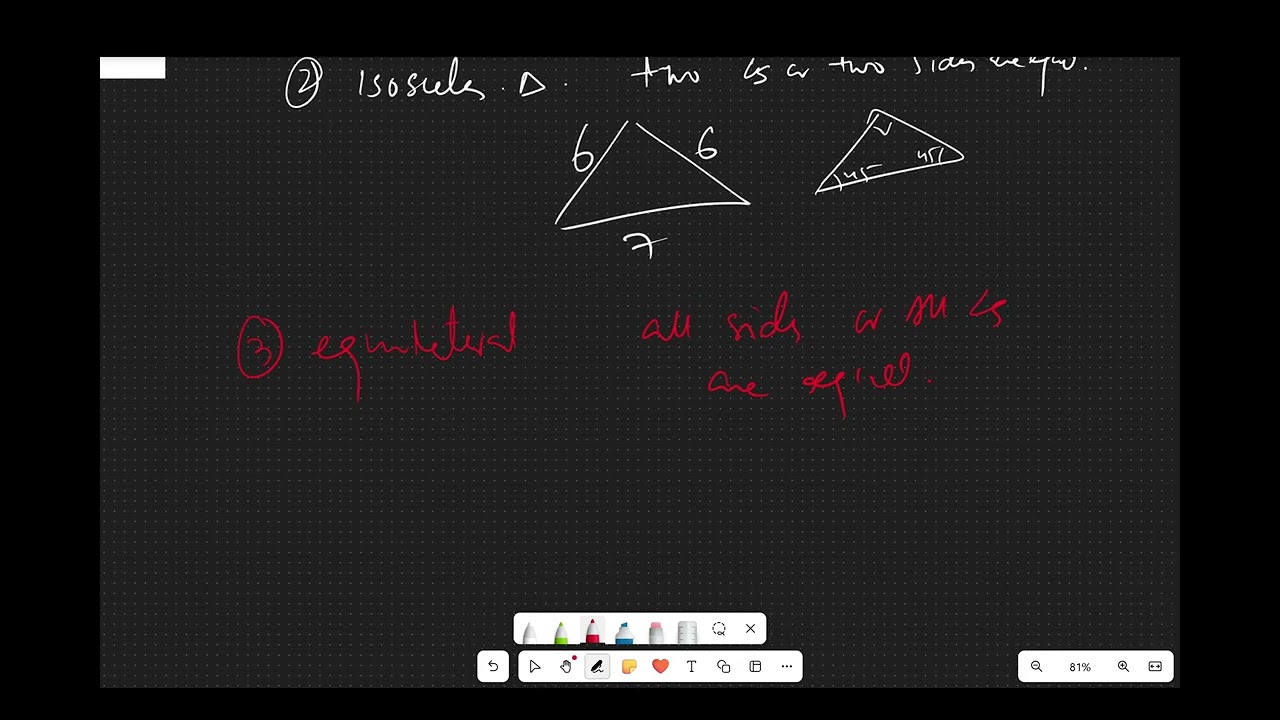 ② Isosceles Δ. two ∠s or two sides are equ.
6 6
45 45
7
③ equilateral all sides or all ∠s
are equal.
T
81%